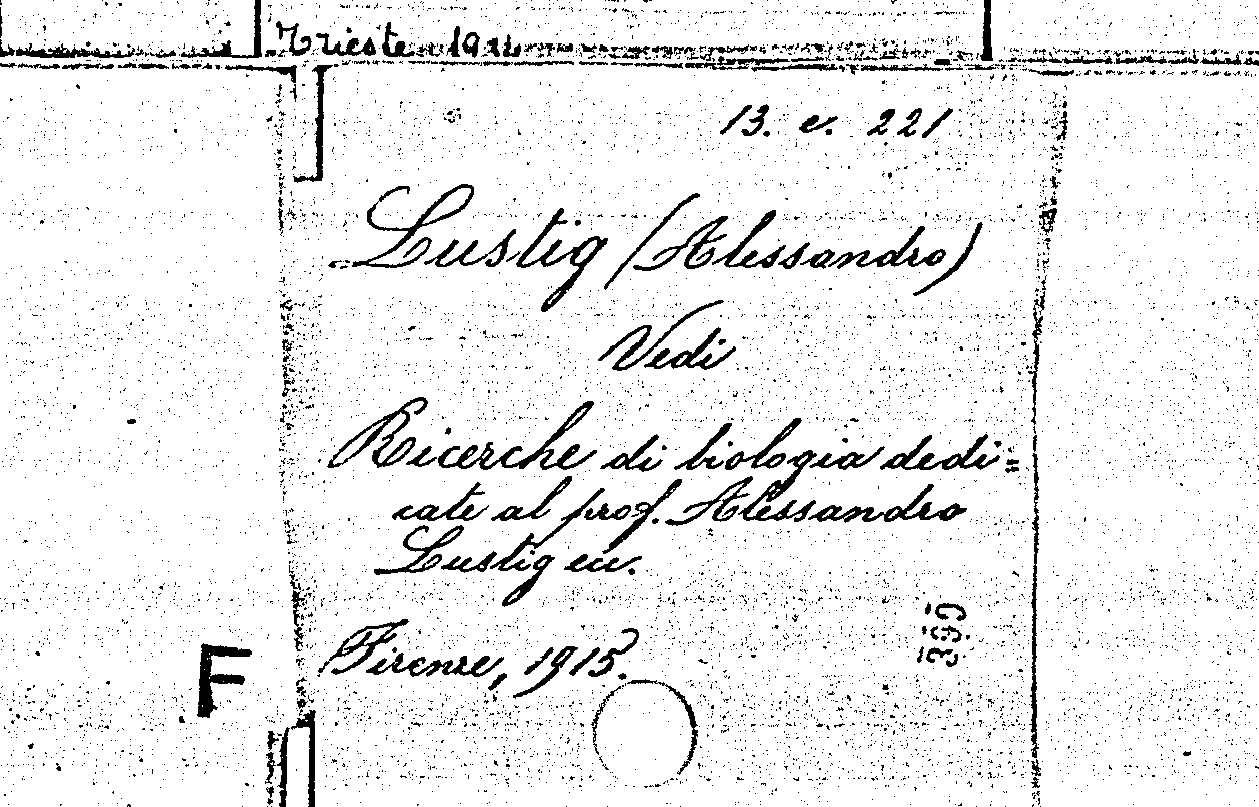 Trieste 1924
13. c. 221
Lustig (Alessandro)
Vedi
Ricerche di biologia dedi=
cate al prof. Alessandro
Lustig ecc.
Firenze, 1915.
F
399